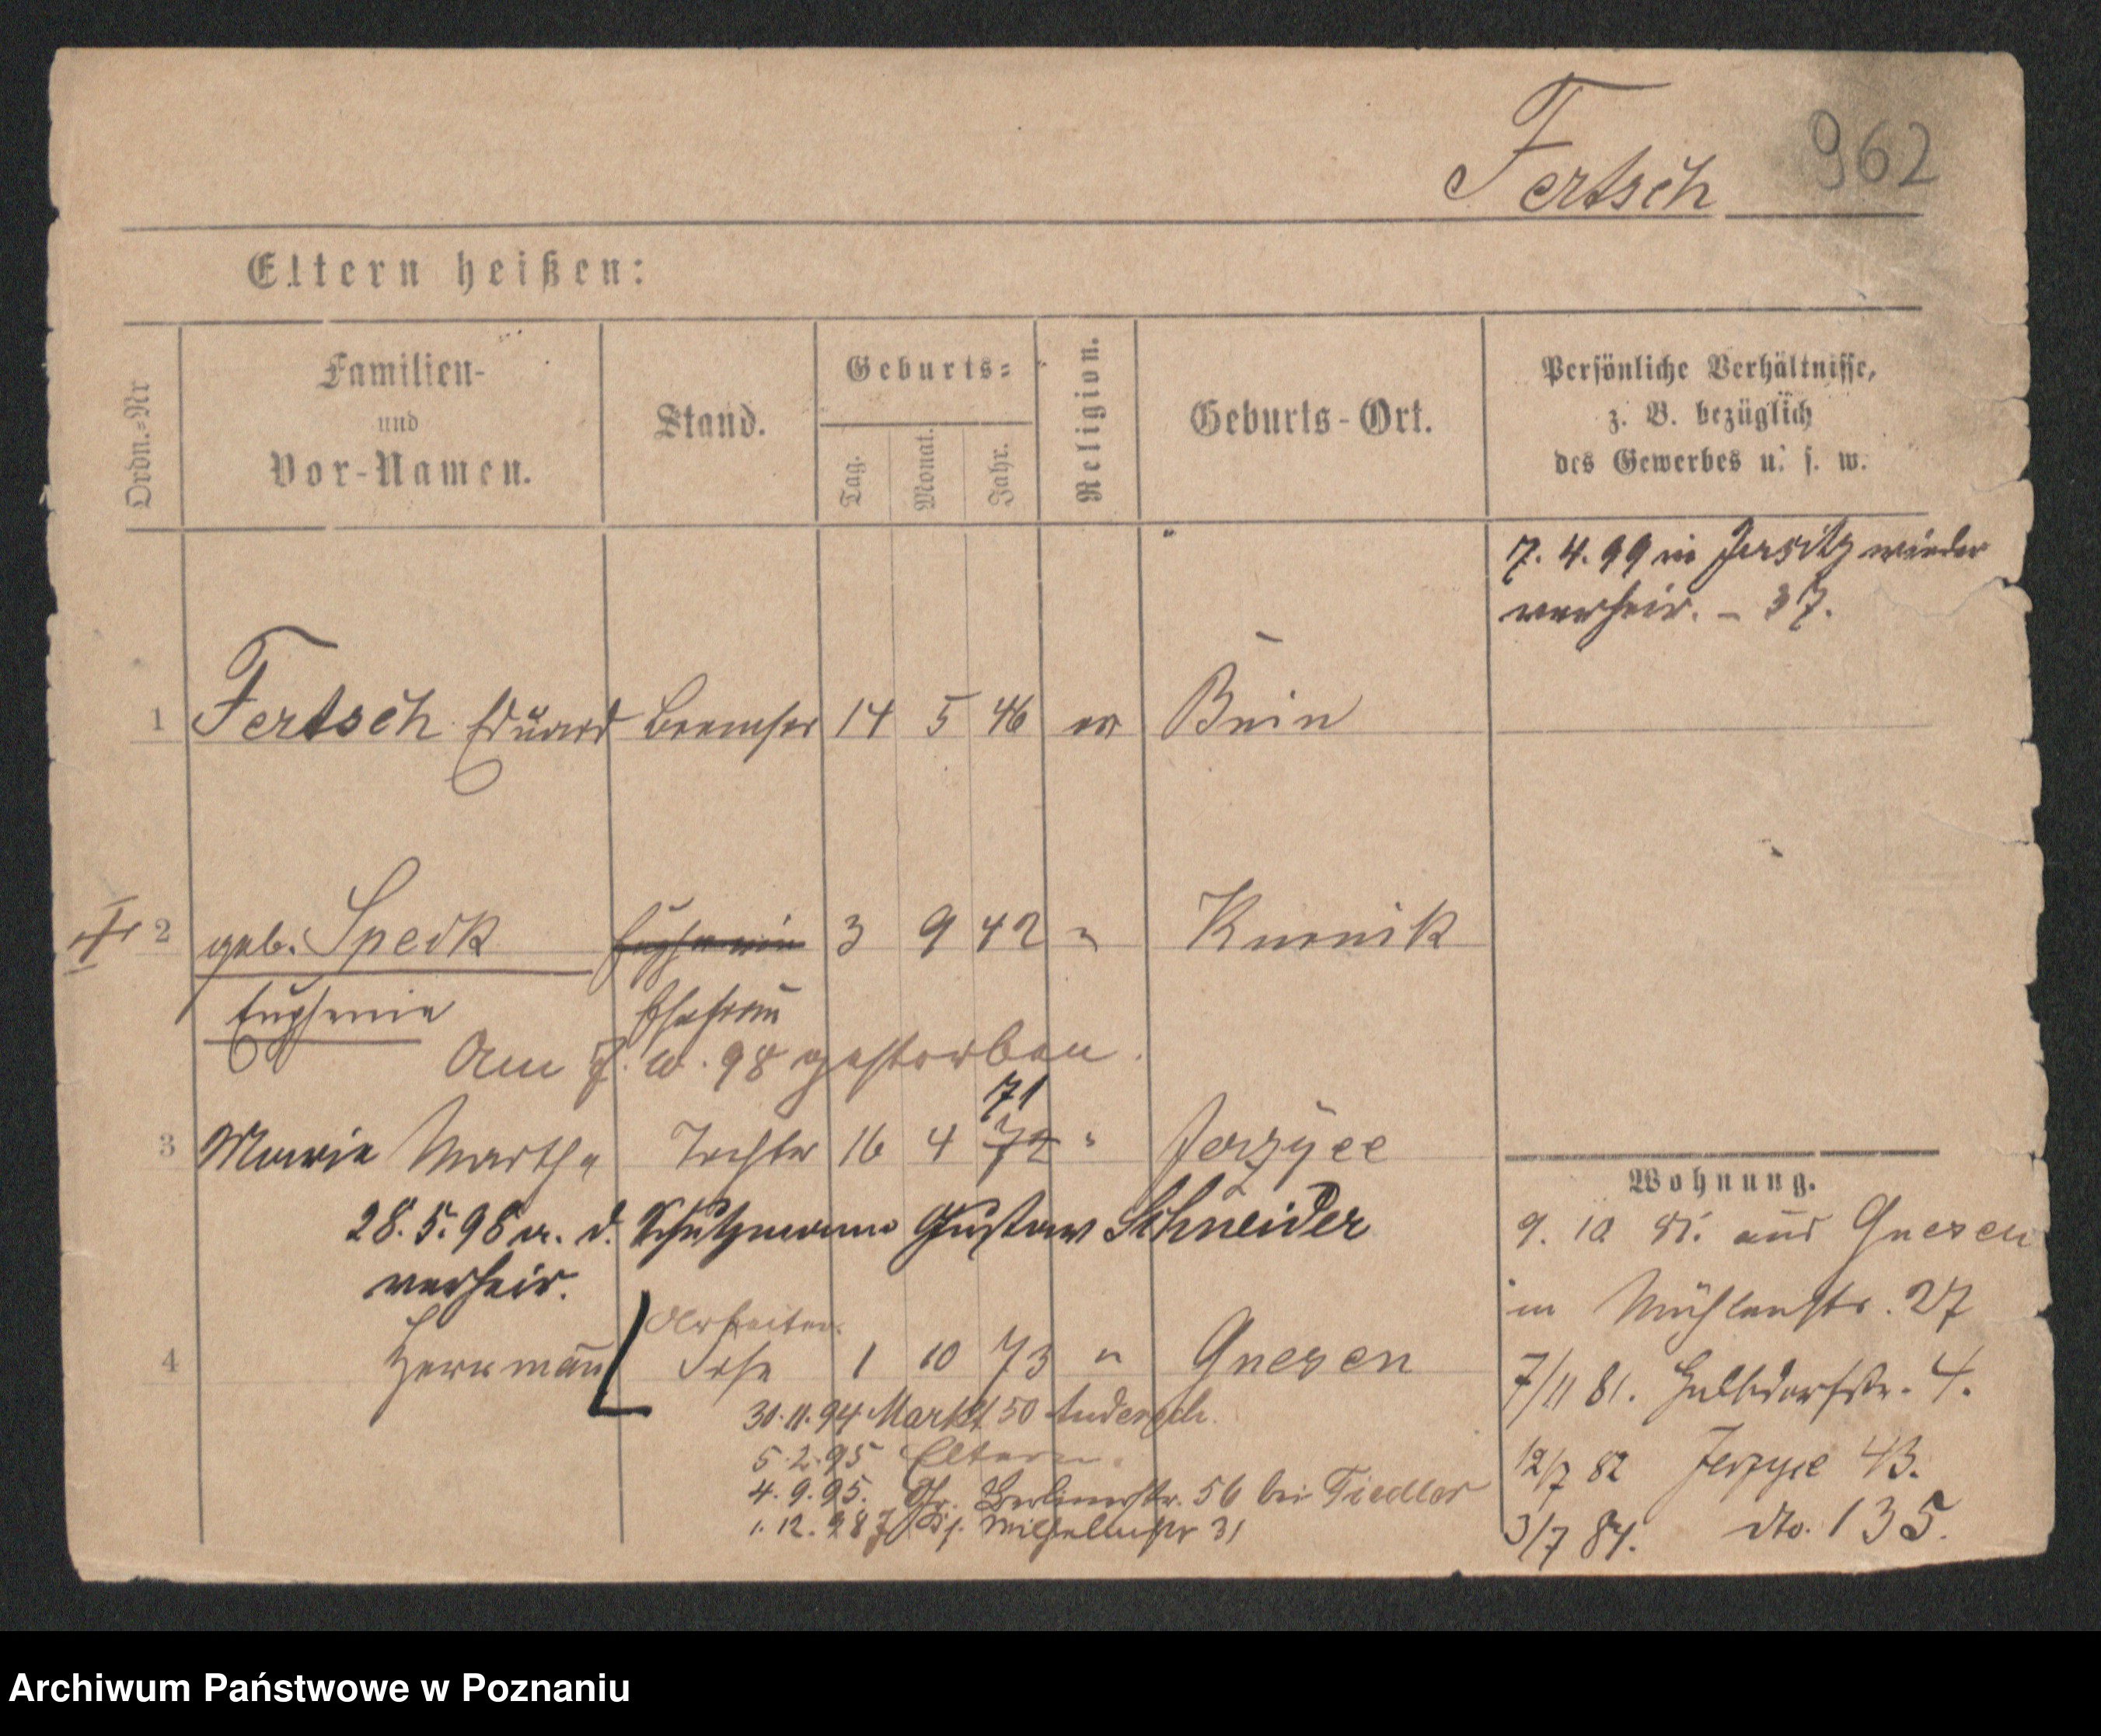 Fertsch 962
Eltern heißen:
Ordn.-Nr
Familien-
und
Vor-Namen.
Stand.
Geburts=
Tag.
Monat.
Jahr.
Religion.
Geburts-Ort.
Persönliche Verhältnisse,
z. B. bezüglich
des Gewerbes u. s. w.
7. 4. 99 in Jersitz wieder
verheir. – 37.
1 Fertsch Eduard 14 5 46 ev Bnin
2 geb. Speck Euphemie 3 9 42 " Kurnik
Euphemie Ehefrau
Am 7. 10. 98 gestorben.
71
3 Marie Martha Tochter 16 4 72 " Jerzyce
28. 5. 98 m. d. Schutzmann Gustav Schneider
verheir.
Arbeiter
4 Herrmann Sohn 1 10 73 " Gnesen
30. 11. 94 Markt 50 Andersch.
5. 2. 95 Eltern.
4. 9. 95. Gr. Berlinerstr. 56 bei Fiedler
1. 12. Wilhelmstr 31
Wohnung.
9. 10 81. aus Gnesen
in Mühlenstr. 27
7/11 81. Halbdorfstr. 4.
12/7 82 Jerzyce 43.
3/7 84. dto. 135.
Archiwum Państwowe w Poznaniu